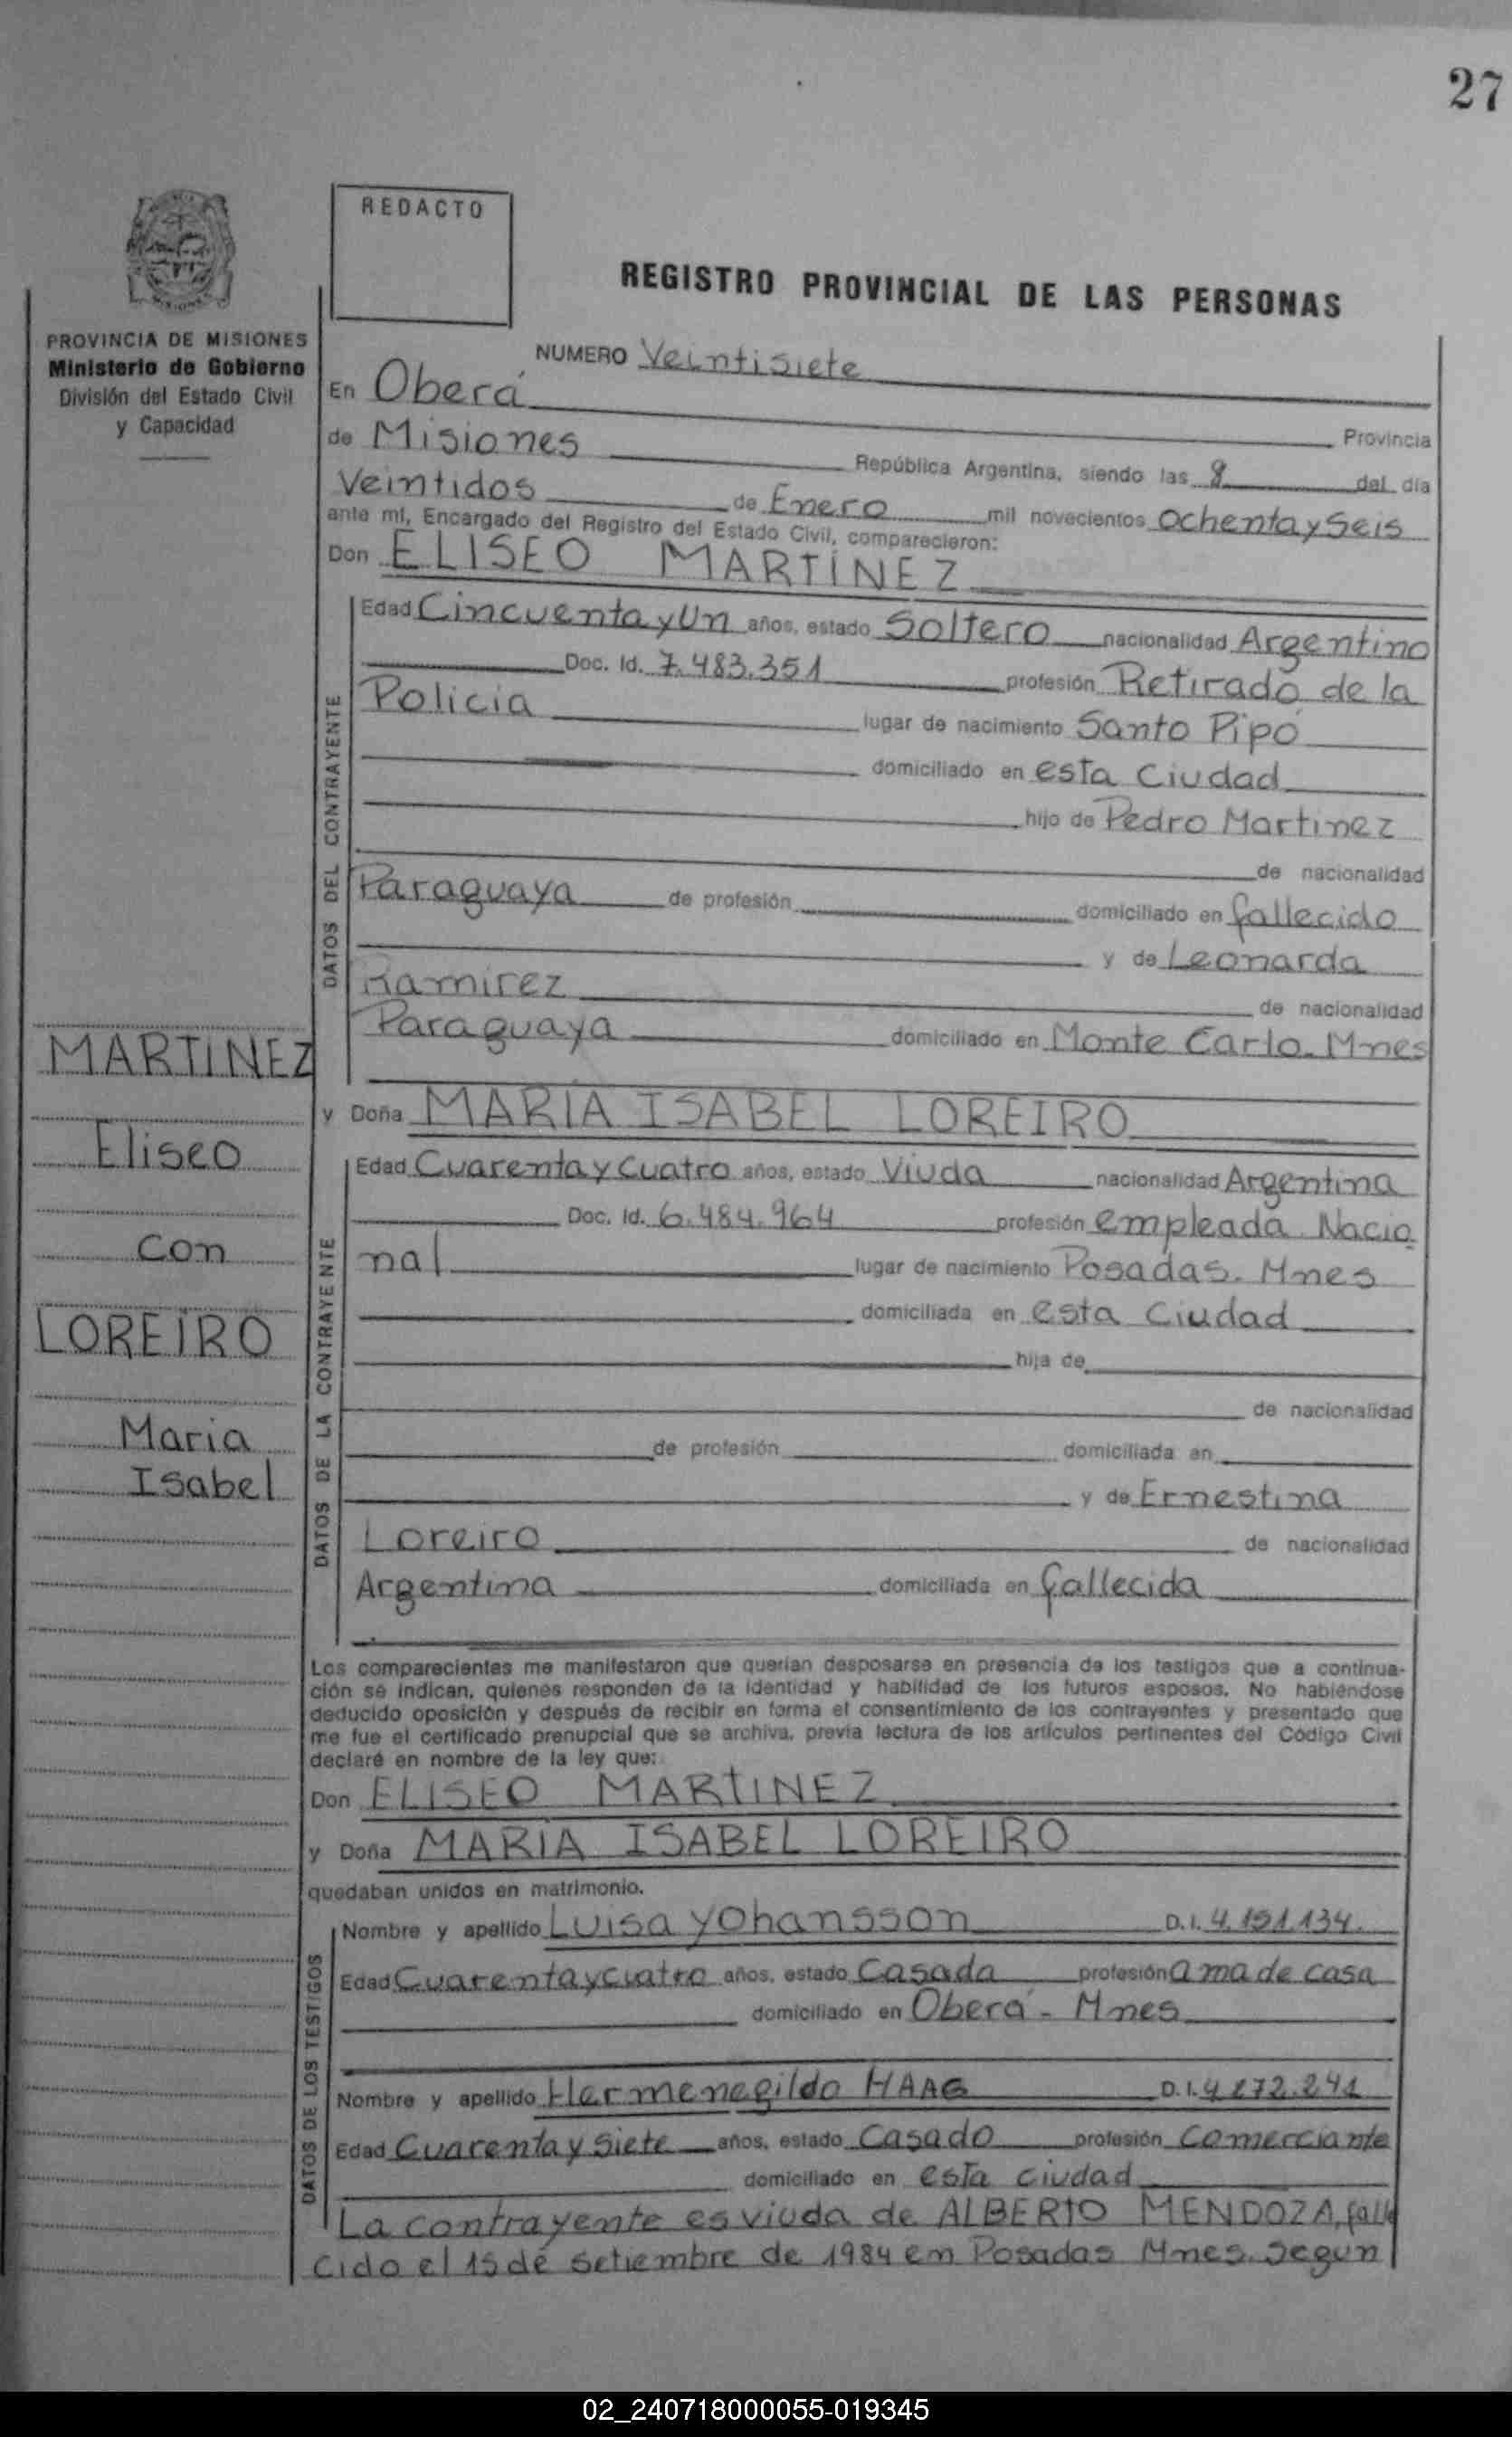 27
REDACTO
REGISTRO PROVINCIAL DE LAS PERSONAS
PROVINCIA DE MISIONES
Ministerio de Gobierno
División del Estado Civil
y Capacidad
NUMERO Veintisiete
En Oberá
Provincia
de Misiones República Argentina, siendo las 8 del día
Veintidos de Enero mil novecientos Ochenta y Seis
ante mí, Encargado del Registro del Estado Civil, comparecieron:
Don ELISEO MARTINEZ
DATOS DEL CONTRAYENTE
Edad Cincuenta y Un años, estado Soltero nacionalidad Argentino
Doc. Id. 7.483.351 profesión Retirado de la
Policia lugar de nacimiento Santo Pipó
domiciliado en esta Ciudad
hijo de Pedro Martinez
de nacionalidad
Paraguaya de profesión domiciliado en fallecido
y de Leonarda
Ramirez de nacionalidad
Paraguaya domiciliado en Monte Carlo. Mnes
MARTINEZ
Eliseo
Con
LOREIRO
Maria
Isabel
y Doña MARIA ISABEL LOREIRO
DATOS DE LA CONTRAYENTE
Edad Cuarenta y Cuatro años, estado Viuda nacionalidad Argentina
Doc. Id. 6.484.964 profesión empleada Nacio
nal lugar de nacimiento Posadas. Mnes
domiciliada en esta Ciudad
hija de
de nacionalidad
de profesión domiciliada en
y de Ernestina
Loreiro de nacionalidad
Argentina domiciliada en fallecida
Los comparecientes me manifestaron que querían desposarse en presencia de los testigos que a continua-
ción se indican, quienes responden de la identidad y habilidad de los futuros esposos. No habiéndose
deducido oposición y después de recibir en forma el consentimiento de los contrayentes y presentado que
me fue el certificado prenupcial que se archiva, previa lectura de los artículos pertinentes del Código Civil
declaré en nombre de la ley que:
Don ELISEO MARTINEZ
y Doña MARIA ISABEL LOREIRO
quedaban unidos en matrimonio.
DATOS DE LOS TESTIGOS
Nombre y apellido Luisa Yohansson D.I. 4.151.134.
Edad Cuarenta y cuatro años, estado Casada profesión ama de casa
domiciliado en Oberá - Mnes
Nombre y apellido Hermenegildo HAAG D.I. 4 172.241
Edad Cuarenta y Siete años, estado Casado profesión Comerciante
domiciliado en esta ciudad
La contrayente es viuda de ALBERTO MENDOZA, falle
cido el 15 de Setiembre de 1984 en Posadas Mnes. Segun
02_240718000055-019345